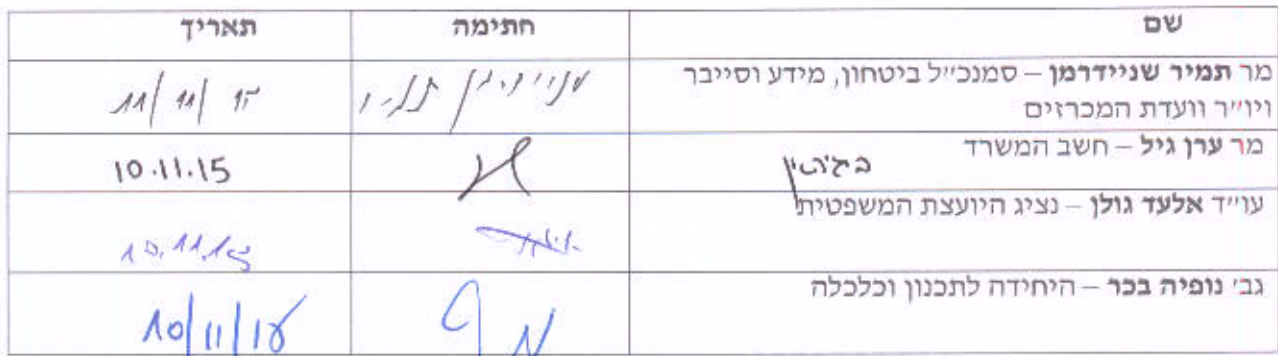 שם חתימה תאריך
מר תמיר שניידרמן – סמנכ״ל ביטחון, מידע וסייבר
ויו״ר וועדת המכרזים
מר ערן גיל – חשב המשרד 10.11.15
עו״ד אלעד גולן – נציג היועצת המשפטית 10.11.15
גב׳ נופיה בכר – היחידה לתכנון וכלכלה